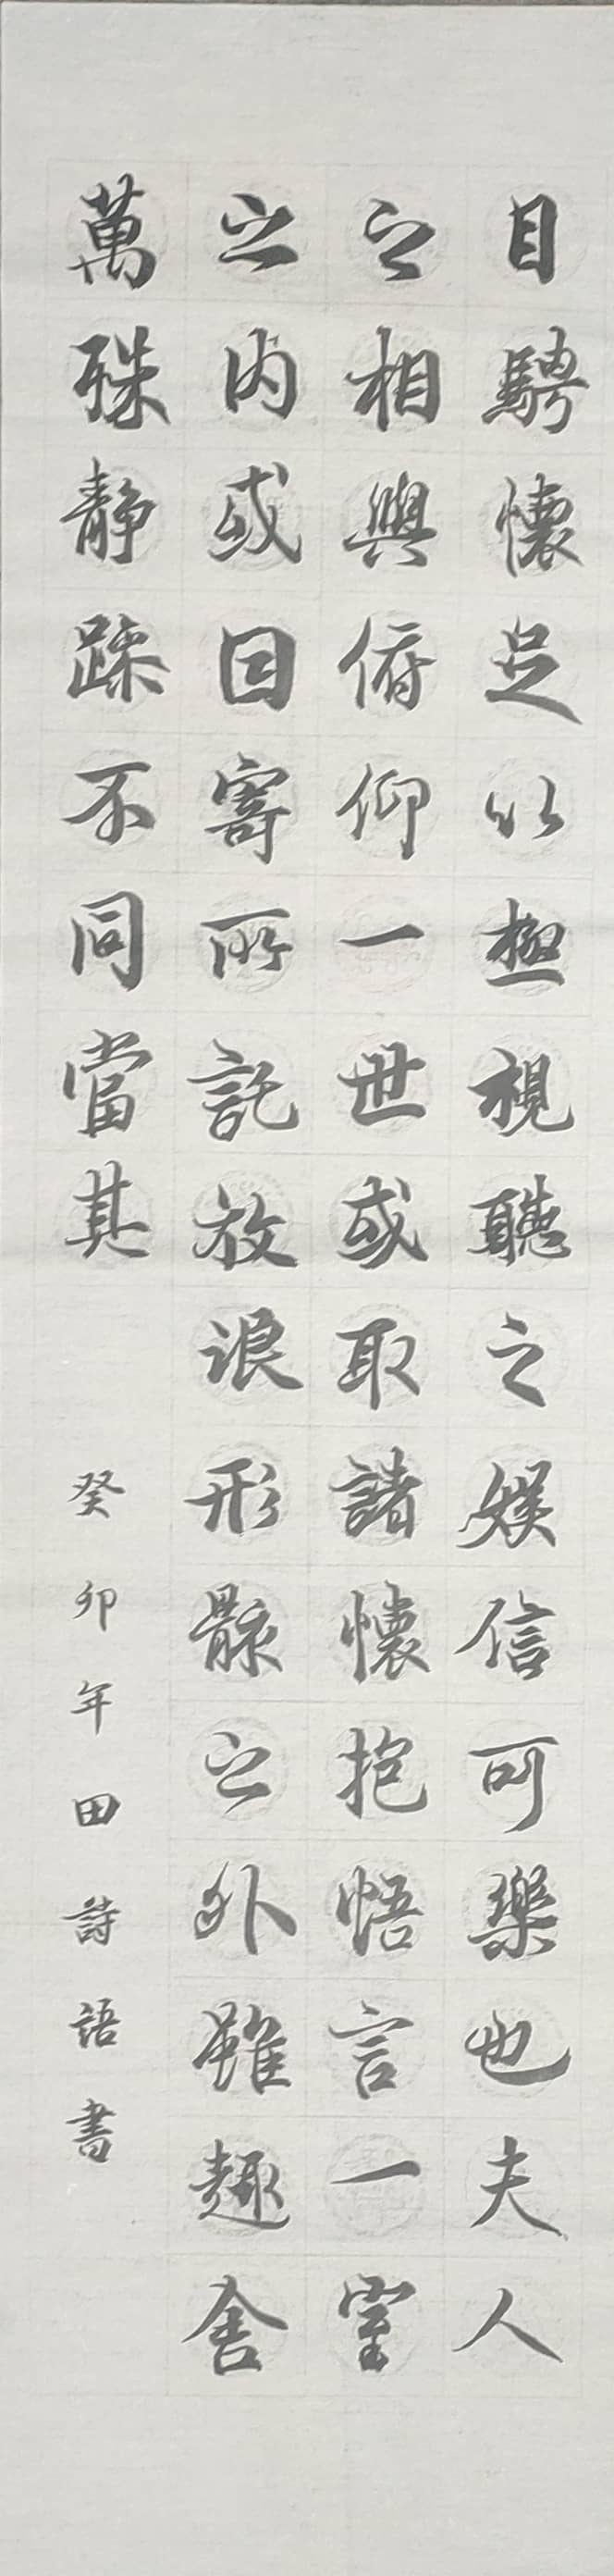 目騁懷足以極視聽之娛信可樂也夫人
之相與俯仰一世或取諸懷抱悟言一室
之內或因寄所託放浪形骸之外雖趣舍
萬殊静躁不同當其
癸卯年田詩語書